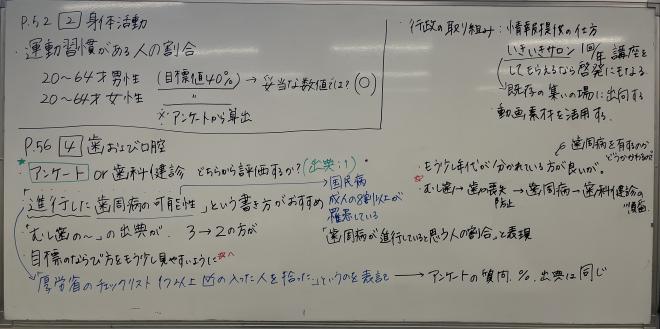 P.52 2 身体活動
・運動習慣がある人の割合
20〜64才男性 (目標値40%) → 妥当な数値では? (〇)
20〜64才女性 〃
※アンケートから算出
・行政の取り組み:情報提供の仕方
いきいきサロン 1回/年 講座を
してもらえるなら啓発にもなる
既存の集いの場に出向する
動画素材を活用する.
P.56 4 歯および口腔
アンケート or 歯科健診 どちらから評価するか? (出典:1)
「進行した歯周病の可能性」という書き方がおすすめ
→国民病
成人の8割以上が
罹患している
「むし歯の〜」の出典が. 3→2の方が
目標のならび方をもう少し見やすいように ※へ
「厚労省のチェックリスト 1つ以上 の入った人を拾った」というのを表記 → アンケートの質問. %. 出典は同じ
歯周病を有するか
どうか
・もう少し年代が分かれている方が良いが。
※むし歯→歯の喪失→歯周病→歯科健診の
防止 順番
「歯周病が進行していると思う人の割合」と表現